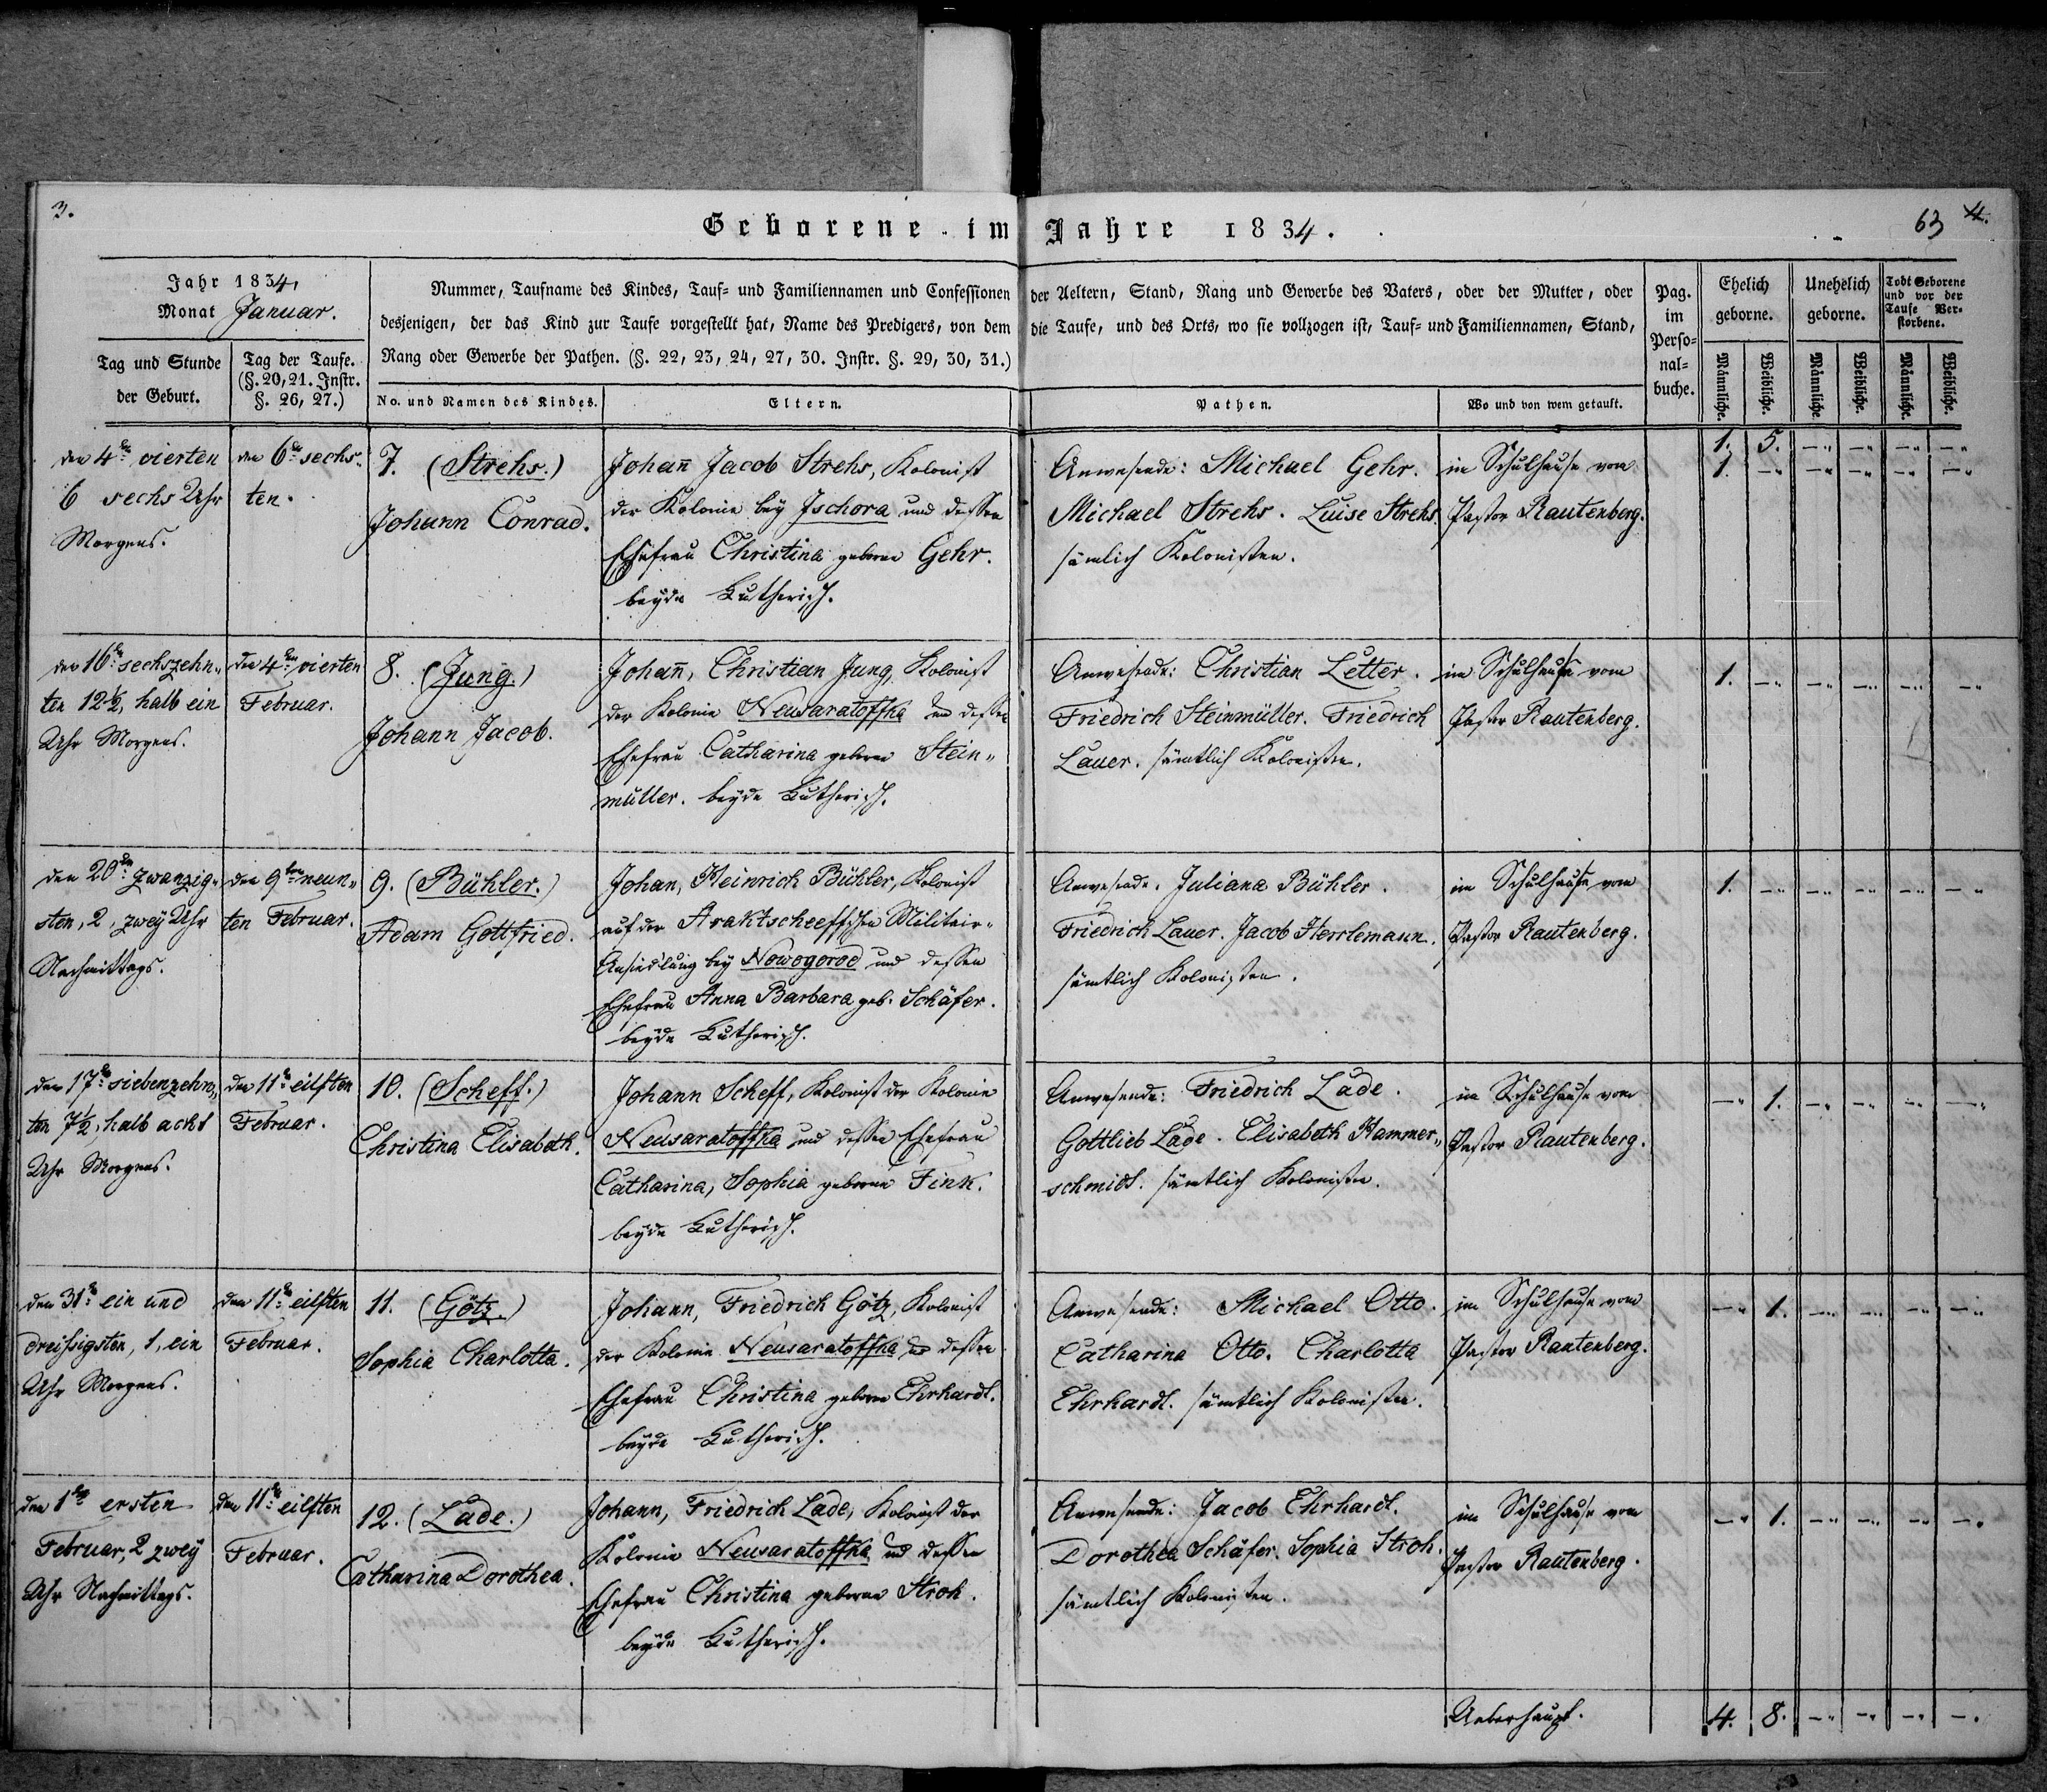 3.
63 4.
Geborene im Jahre 1834.
Jahr 1834,
Monat Januar.
Tag und Stunde
der Geburt.
Tag der Taufe.
(§. 20, 21. Instr.
§. 26, 27.)
Nummer, Taufname des Kindes, Tauf- und Familiennamen und Confessionen der Aeltern, Stand, Rang und Gewerbe des Vaters, oder der Mutter, oder
desjenigen, der das Kind zur Taufe vorgestellt hat, Name des Predigers, von dem die Taufe, und des Orts, wo sie vollzogen ist, Tauf- und Familiennamen, Stand,
Rang oder Gewerbe der Pathen. (§. 22, 23, 24, 27, 30. Instr. §. 29, 30, 31.)
No. und Namen des Kindes.
Eltern.
Pathen.
Wo und von wem getauft.
Pag.
im
Perso-
nal-
buche.
Ehelich
geborne.
Unehelich
geborne.
Todt Geborene
und vor der
Taufe Ver-
storbene.
Männliche.
Weibliche.
Männliche
Weibliche.
Männliche.
Weibliche.
1. 5. —„ —„ —„ —„
den 4ten vierten
6 sechs Uhr
Morgens.
den 6ten sechs-
ten.
7. (Strehs.)
Johann Conrad.
Johan̄ Jacob Strehs, Kolonist
der Kolonie bey Jschora und dessen
Ehefrau Christina geborne Gehr.
beyde Lutherisch.
Anwesende: Michael Gehr.
Michael Strehs. Luise Strehs
sämlich Kolonisten.
im Schulhause vom
Pastor Rautenberg.
1. —„ —„ —„ —„ —„
den 16ten sechszehn„
ten 12½, halb ein
Uhr Morgens.
den 4ten vierten
Februar.
8. (Jung.)
Johann Jacob.
Johan̄, Christian Jung, Kolonist
der Kolonie Neusaratoffka und dessen
Ehefrau Catharina geborne Stein„
müller. beyde Lutherisch.
Anwesende: Christian Letter.
Friedrich Steinmüller. Friedrich
Lauer. sämtlich Kolonisten.
im Schulhause vom
Pastor Rautenberg.
1. —„ —„ —„ —„ —„
den 20ten zwanzig„
sten, 2, zwey Uhr
Nachmittags.
den 9ten neun„
ten Februar.
9. (Bühler.)
Adam Gottfried.
Johan, Heinrich Bühler, Kolonist
auf der Araktscheeffschen Militair„
Ansiedlung bey Nowogorod und dessen
Ehefrau Anna Barbara geb. Schäfer.
beyde Lutherisch.
Anwesende. Juliana Bühler.
Friedrich Lauer. Jacob Herrlemann.
sämtlich Kolonisten.
im Schulhause vom
Pastor Rautenberg.
1. —„ —„ —„ —„ —„
den 17ten siebenzehn„
ten 7½, halb acht
Uhr Morgens.
den 11ten eilften
Februar.
10. (Scheff.)
Christina Elisabeth.
Johann Scheff, Kolonist der Kolonie
Neusaratoffka und dessen Ehefrau
Catharina, Sophia geborne Fink.
beyde Lutherisch.
Anwesende: Friedrich Lade.
Gottlieb Lade. Elisabeth Hammer„
schmidt. sämtlich Kolonisten.
im Schulhause vom
Pastor Rautenberg.
—„ 1. —„ —„ —„ —„
den 31ten ein und
dreißigsten, 1, ein
Uhr Morgens.
den 11ten eilften
Februar.
11. (Götz.)
Sophia Charlotta.
Johann, Friedrich Götz, Kolonist
der Kolonie Neusaratoffka und dessen
Ehefrau Christina geborne Ehrhardt.
beyde Lutherisch.
Anwesende: Michael Otto.
Catharina Otto. Charlotta
Ehrhardt. sämtlich Kolonisten.
im Schulhause vom
Pastor Rautenberg.
—„ 1. —„ —„ —„ —„
den 1ten ersten
Februar, 2 zwey
Uhr Nachmittags.
den 11ten eilften
Februar.
12. (Lade.)
Catharina Dorothea.
Johann, Friedrich Lade, Kolonist der
Kolonie Neusaratoffka und dessen
Ehefrau Christina geborne Stroh.
beyde Lutherisch.
Anwesende: Jacob Ehrhardt.
Dorothea Schäfer. Sophia Stroh.
sämtlich Kolonisten.
im Schulhause vom
Pastor Rautenberg.
—„ 1. —„ —„ —„ —„
Ueberhaupt. 4. 8. —„ —„ —„ —„